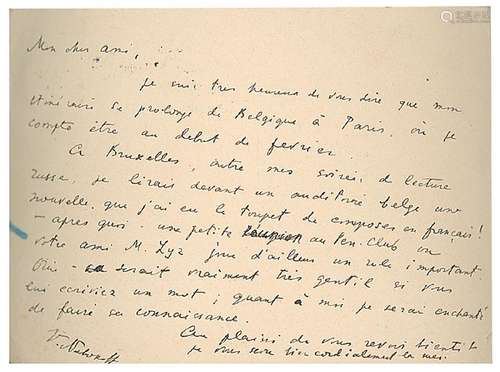 Mon cher ami,
je suis très heureux de vous dire que mon
itinéraire se prolonge de Belgique à Paris, où je
compte être au début de fevrier.
A Bruxelles, outre mes soirées de lecture
russe, je lirais devant un auditoire belge une
nouvelle, que j'ai eu le toupet de composer en français!
- après quoi - une petite reunion au Pen-Club où
votre ami M. joue d'ailleurs un role important.
Oui - ce serait vraiment très gentil si vous
lui écriviez un mot; quant à moi je serai enchanté
de faire sa connaissance.
Au plaisir de vous revoir bientôt
je vous serre bien cordialement la main.
V. Nabokoff